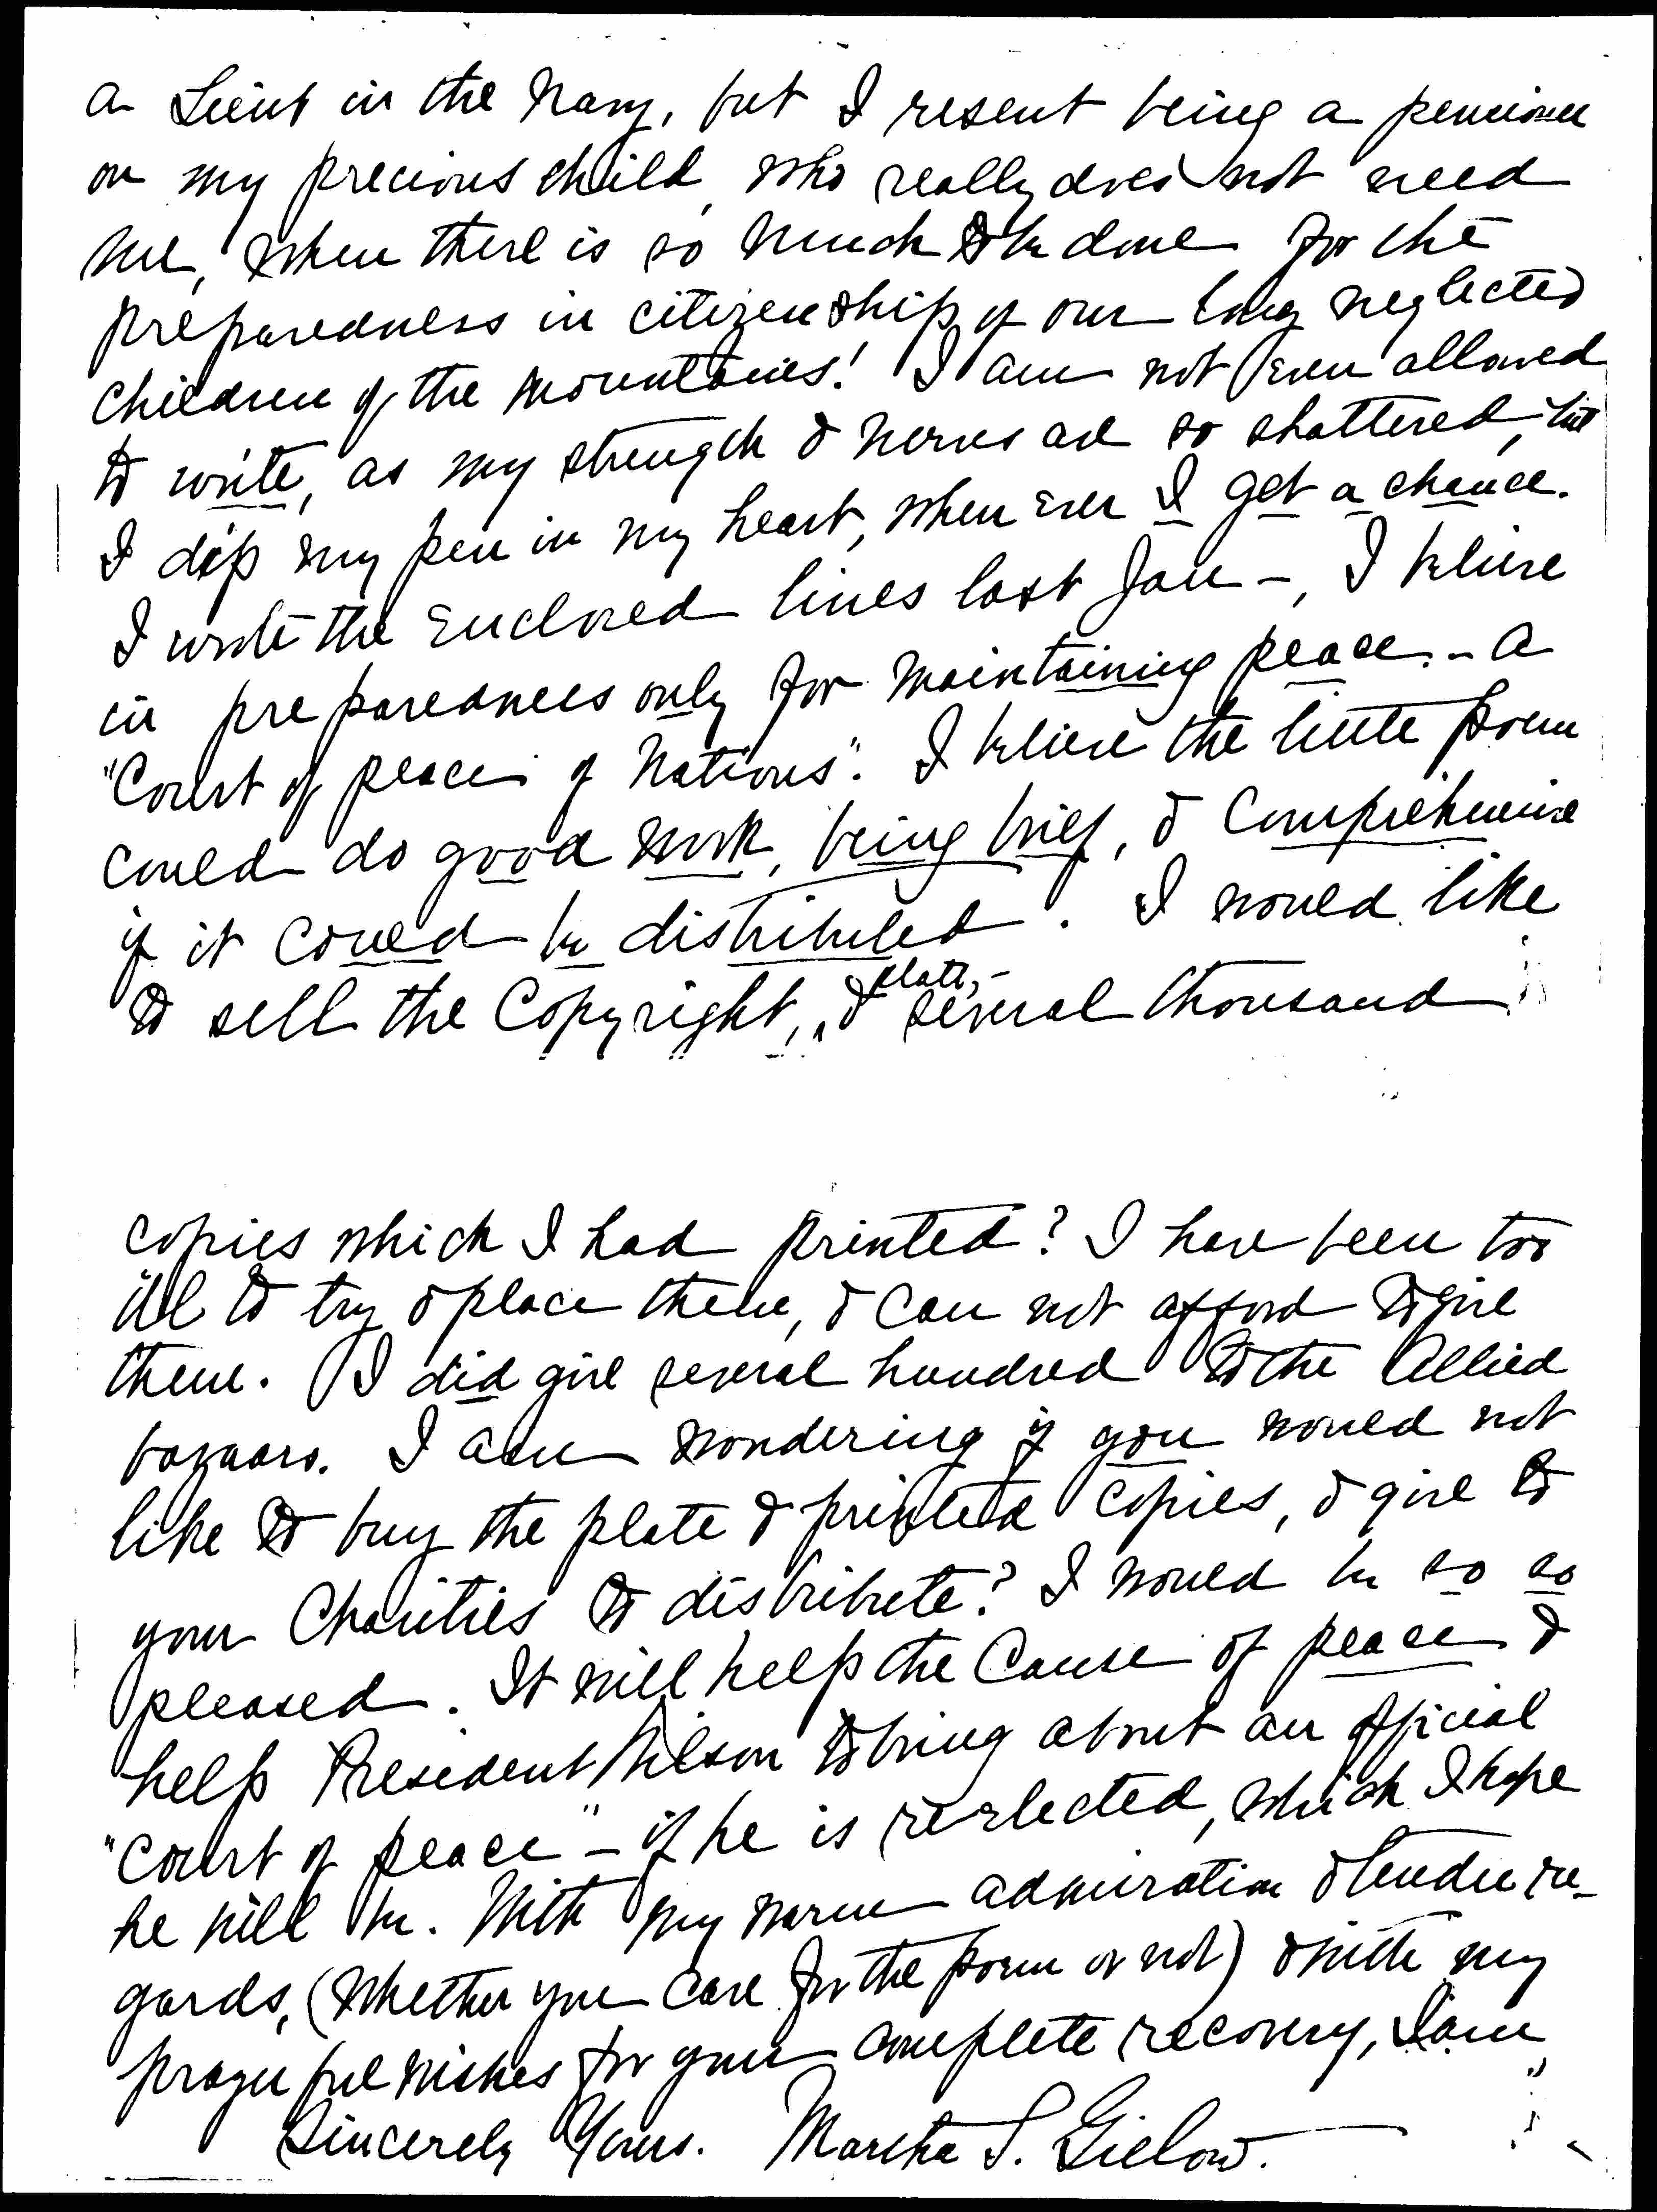 a Lieut in the Navy, but I resent being a pensioner
on my precious child, who really does not need
me, when there is so much to be done for the
preparedness in citizenship of our long neglected
children of the mountains! I am not even allowed
to write, as my strength & nerves are so shattered, but
I dip my pen in my heart, when ever I get a chance.
I wrote the enclosed lines last Jan –, I believe
in preparedness only for maintaining peace. – a
"Court of peace of Nations". I believe the little poem
could do good work, being brief, & comprehensive
if it could be distributed. I would like
to sell the Copyright, & plate, – several thousand
copies which I had printed? I have been too
ill to try & place them, & can not afford to give
them. I did give several hundred to the Allied
bazaars. I am wondering if you would not
like to buy the plate & printed copies, & give to
your Charities to distribute? I would be so so
pleased. It will help the Cause of peace &
help President Wilson to bring about an official
"Court of peace" – if he is reelected, which I hope
he will be. With my warm admiration & tender re-
gards, (whether you care for the poem or not) & with my
prayerful wishes for your complete recovery, I am
Sincerely Yours. Martha S. Gielow.